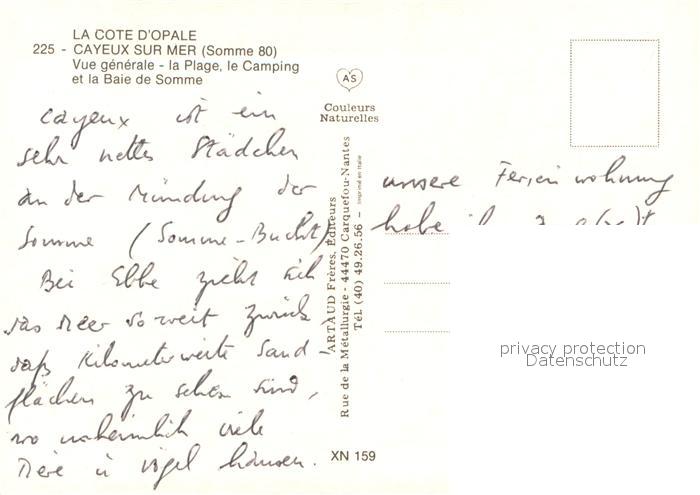 LA COTE D'OPALE
225 - CAYEUX SUR MER (Somme 80)
Vue générale - la Plage, le Camping
et la Baie de Somme
A'S
Couleurs
Naturelles
ARTAUD Frères, Éditeurs
Rue de la Métallurgie - 44470 Carquefou-Nantes
Tél. (40) 49.26.56 - Imprimé en Italie
XN 159
Cayeux ist ein
sehr nettes Städchen
an der Mündung der
Somme (Somme-Bucht)
Bei Ebbe zieht sich
das Meer so weit zurück,
daß kilometerweite Sand-
flächen zu sehen sind,
wo unheimlich viele
Tiere u Vögel hausen.
unsere Ferienwohnung
habe
privacy protection
Datenschutz